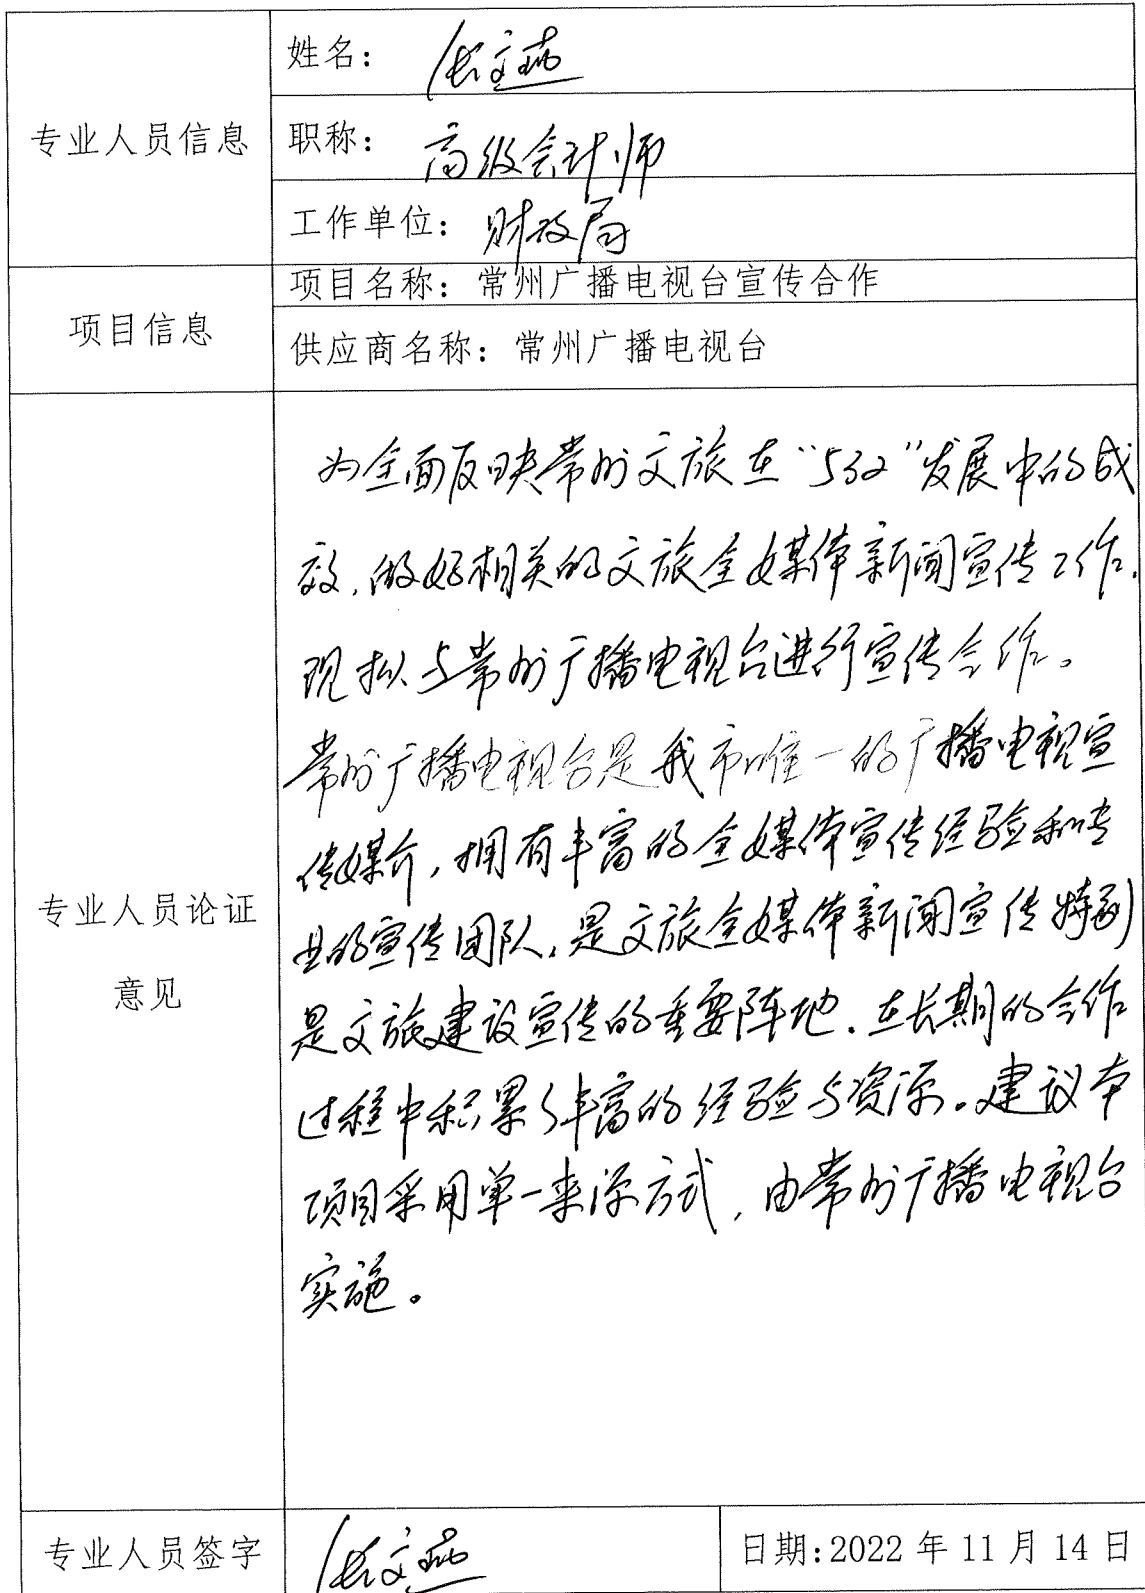 姓名：张文燕
专业人员信息
职称：高级会计师
工作单位：财政局
项目信息
项目名称：常州广播电视台宣传合作
供应商名称：常州广播电视台
为全面反映常州文旅在“532”发展中的成
效，做好相关的文旅全媒体新闻宣传工作，
现拟与常州广播电视台进行宣传合作。
常州广播电视台是我市唯一的广播电视宣
传媒介，拥有丰富的全媒体宣传经验和专
业的宣传团队，是文旅全媒体新闻宣传特别
是文旅建设宣传的重要阵地，在长期的合作
过程中积累了丰富的经验与资源。建议本
项目采用单一来源方式，由常州广播电视台
实施。
专业人员论证
意见
专业人员签字
张文燕
日期:2022 年 11 月 14 日